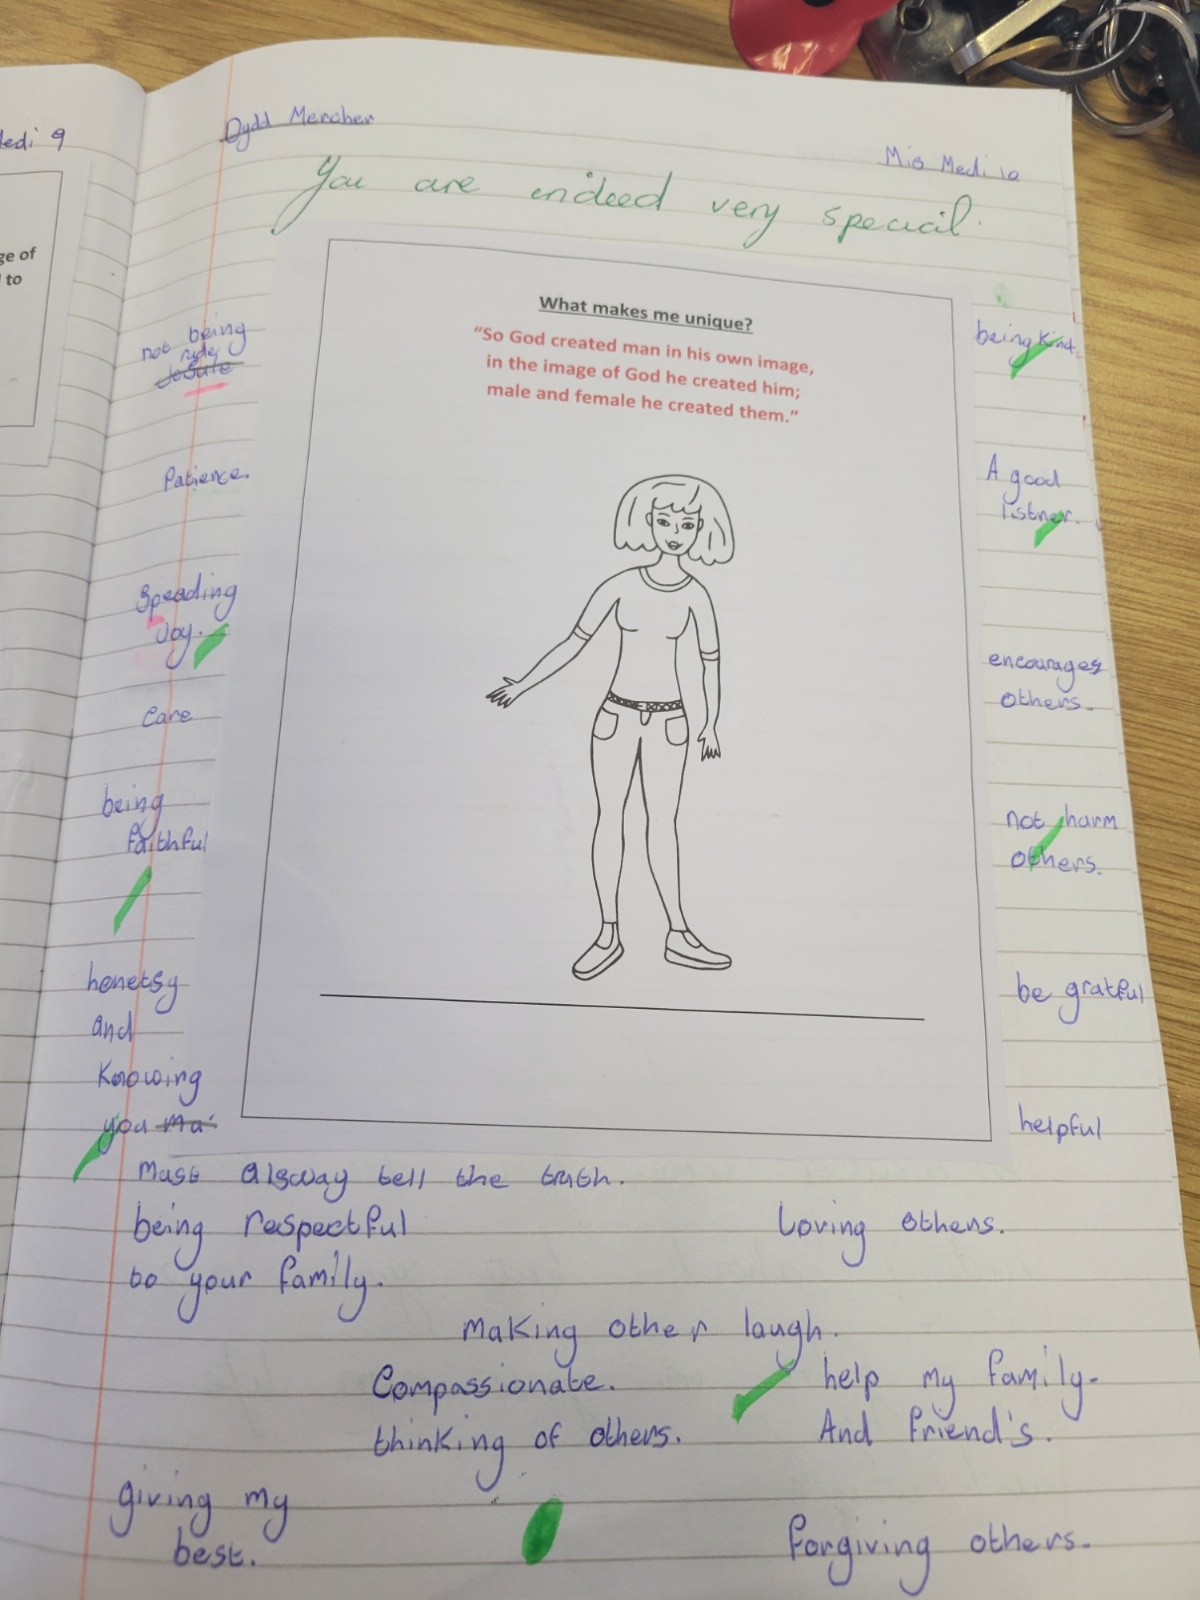 Medi 9
ge of
to
Dydd Mercher
Mis Medi 10
You are indeed very special.
What makes me unique?
"So God created man in his own image,
in the image of God he created him;
male and female he created them."
not being
rude
Patience.
Speading
Joy.
Care
being
faithful
honetsy
and
Knowing
you
must alsway tell the truth.
being respectful
to your family.
being kind.
A good
listner.
encourages
others.
not harm
others.
be gratful
helpful
Loving others.
Making other laugh.
Compassionate.
thinking of others.
help my family.
And friend's.
giving my
best.
forgiving others.